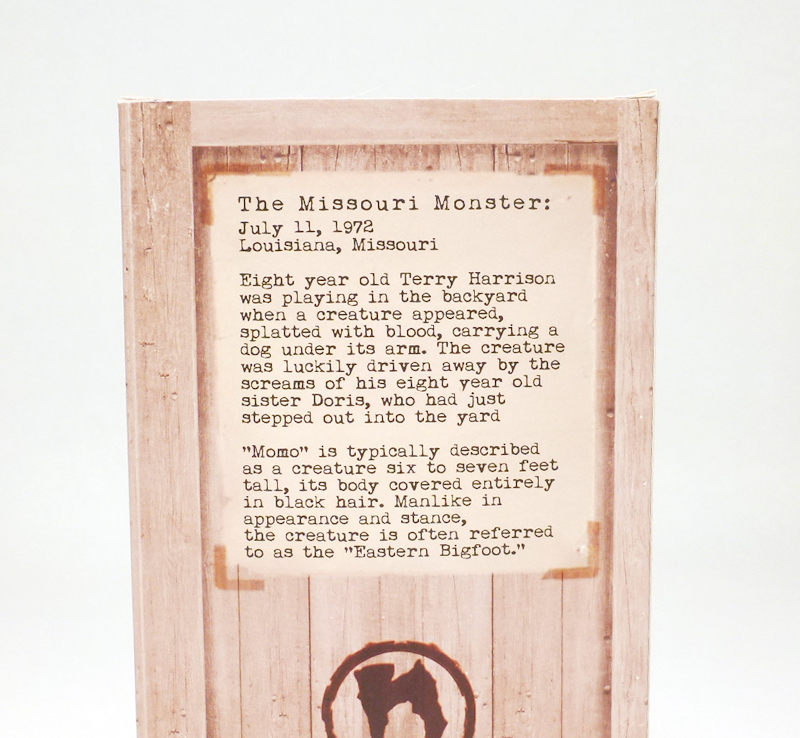 The Missouri Monster:
July 11, 1972
Louisiana, Missouri
Eight year old Terry Harrison
was playing in the backyard
when a creature appeared,
splatted with blood, carrying a
dog under its arm. The creature
was luckily driven away by the
screams of his eight year old
sister Doris, who had just
stepped out into the yard
"Momo" is typically described
as a creature six to seven feet
tall, its body covered entirely
in black hair. Manlike in
appearance and stance,
the creature is often referred
to as the "Eastern Bigfoot."
n